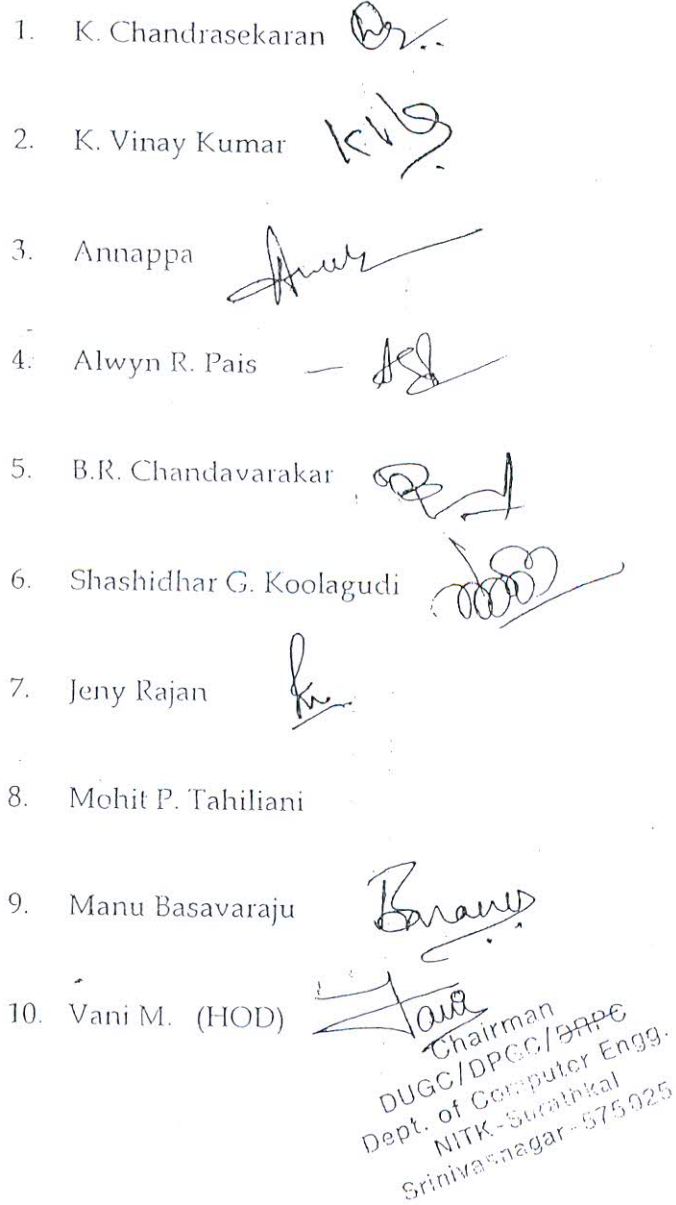 1. K. Chandrasekaran
2. K. Vinay Kumar
3. Annappa
4. Alwyn R. Pais –
5. B.R. Chandavarakar
6. Shashidhar G. Koolagudi
7. Jeny Rajan
8. Mohit P. Tahiliani
9. Manu Basavaraju
10. Vani M. (HOD)
Chairman
DUGC/DPGC/DRPC
Dept. of Computer Engg.
NITK-Surathkal
Srinivasnagar-575025